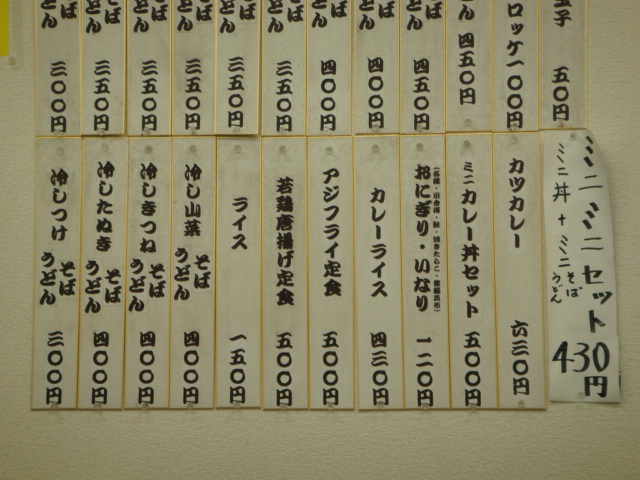 玉子 五〇円
ロッケ 一〇〇円
ん 四五〇円
そば うどん 四五〇円
そば うどん 四〇〇円
そば うどん 四〇〇円
そば うどん 三五〇円
そば うどん 三五〇円
そば うどん 三五〇円
そば うどん 三五〇円
そば うどん 三五〇円
そば うどん 三〇〇円
ミニミニセット
ミニ丼+ミニそばうどん
430円
カツカレー 六三〇円
ミニカレー丼セット 五〇〇円
おにぎり・いなり 一二〇円
アジフライ定食 五〇〇円
カレーライス 四三〇円
若鶏唐揚げ定食 五〇〇円
ライス 一五〇円
冷し山菜 そば うどん 四〇〇円
冷しきつね そば うどん 四〇〇円
冷したぬき そば うどん 四〇〇円
冷しつけ そば うどん 三〇〇円